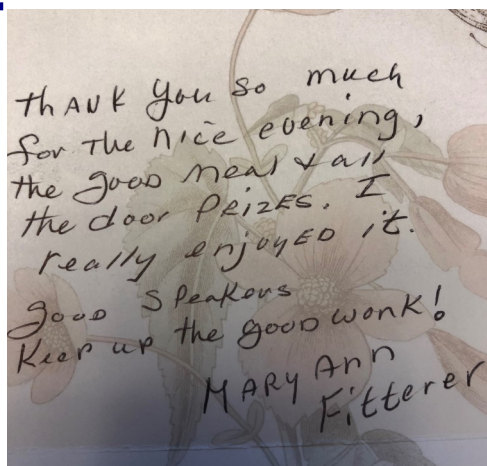 thANK you so much
for The nice evening,
the good meal & all
the door PRIZES. I
really enjoyED it.
good SPeakers
Keep up the good work!
MARY Ann
Fitterer